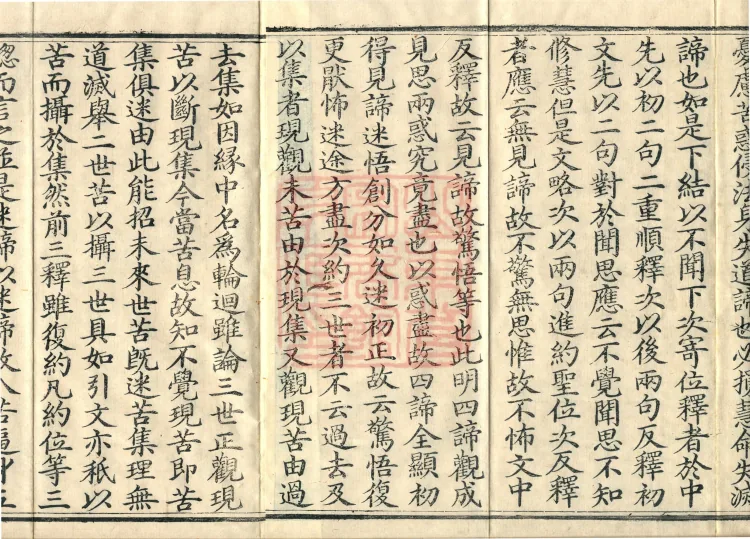 憂應苦惑侵法身失道諦也必損慧命失滅
諦也如是下結以不聞下次寄位釋者於中
先以初二句二重順釋次以後兩句反釋初
文先以二句對於聞思應云不覺聞思不知
修慧但是文略次以兩句進約聖位次反釋
者應云無見諦故不驚無思惟故不怖文中
反釋故云見諦故驚悟等也此明四諦觀成
見思兩惑究竟盡也以惑盡故四諦全顯初
得見諦迷悟創分如久迷初正故云驚悟復
更猒怖迷途方盡次約三世者不云過去及
以集者現觀未苦由於現集又觀現苦由過
去集如因緣中名為輪迴雖論三世正觀現
苦以斷現集今當苦息故知不覺現苦即苦
集俱迷由此能招未來世苦既迷苦集理無
道滅舉二世苦以攝三世具如引文亦秖以
苦而攝於集然前三釋雖復約凡約位等三
總而言之並是迷諦以迷諦故八苦逼